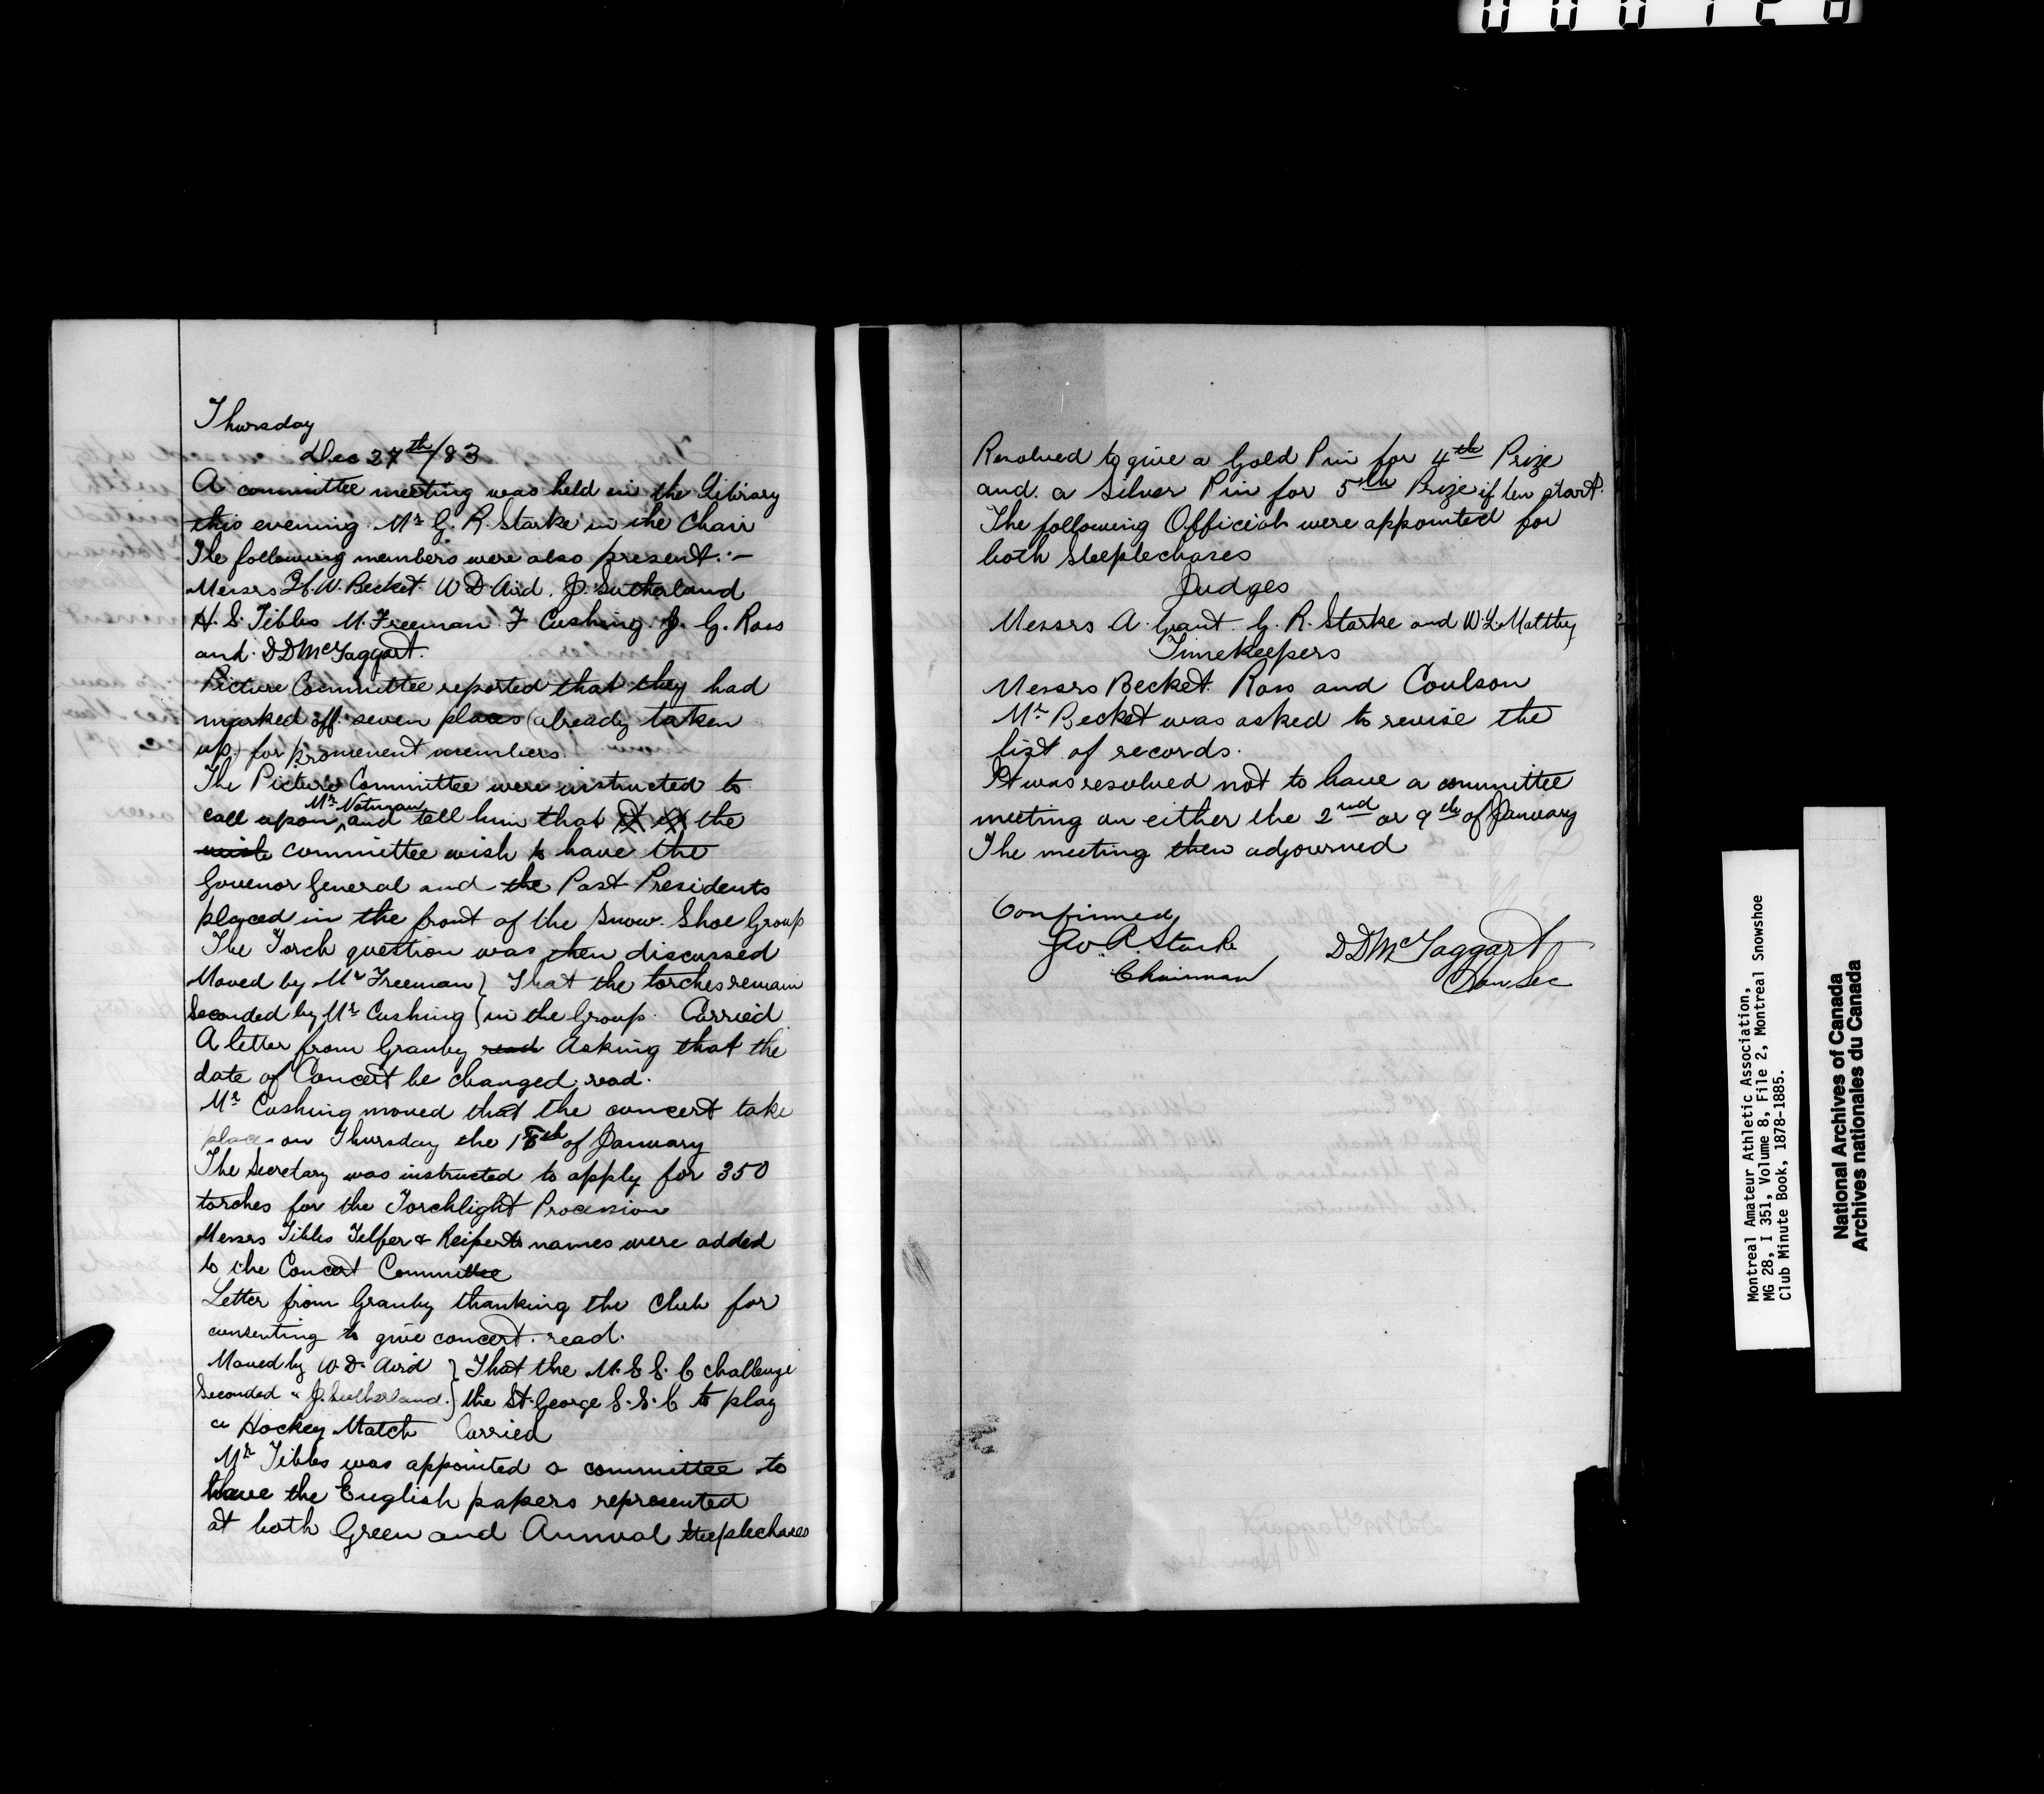 Thursday
Dec 27th/83
A committee meeting was held in the Library
this evening Mr G. R. Starke in the Chair
The following members were also present:-
Messrs H. W. Becket. W D Aird. J. Sutherland
H. S. Tibbs M. Freeman F Cushing J. G. Ross
and D D McTaggart.
Picture Committee reported that they had
marked off seven places (already taken
up) for prominent members.
The Picture Committee were instructed to
call upon Mr Notman and tell him that the
wish committee wish to have the
Govenor General and the Past Presidents
placed in the front of the Snow Shoe Group
The Torch question was then discussed
Moved by Mr Freeman } That the torches remain
Seconded by Mr Cushing } in the Group. Carried
A letter from Granby read asking that the
date of Concert be changed, read.
Mr Cushing moved that the concert take
place on Thursday the 18th of January
The Secretary was instructed to apply for 350
torches for the Torchlight Procession
Messrs Tibbs Telfer & Reiperts names were added
to the Concert Committee
Letter from Granby thanking the Club for
consenting to give concert. read.
Moved by W. D. Aird } That the M. S. S. C challenge
Seconded " J. Sutherland. } the St. George S. S. C to play
a Hockey Match Carried
Mr Tibbs was appointed a committee to
have the English papers represented
at both Green and Annual steeplechases
Resolved to give a Gold Pin for 4th Prize
and a Silver Pin for 5th Prize if ten start.
The following Officials were appointed for
both Steeplechases
Judges
Messrs A. Grant. G. R. Starke and W. L. Maltby
Timekeepers
Messrs Becket. Ross and Coulson
Mr Becket was asked to revise the
list of records.
It was resolved not to have a committee
meeting on either the 2nd or 9th of January
The meeting then adjourned
Confirmed
Geo. R. Starke
Chairman
DDMcTaggart
Hon Sec
Montreal Amateur Athletic Association,
MG 28, I 351, Volume 8, File 2, Montreal Snowshoe
Club Minute Book, 1878-1885.
National Archives of Canada
Archives nationales du Canada